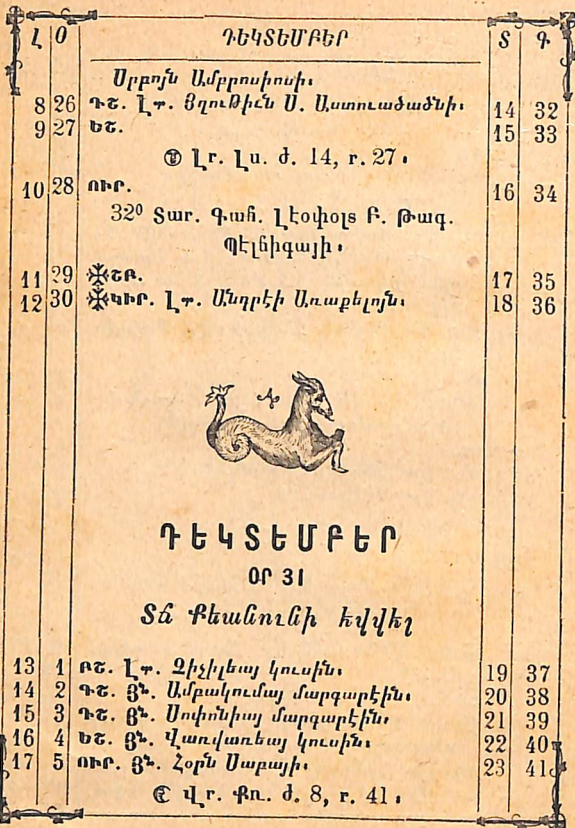 Լ Օ ԴԵԿՏԵՄԲԵՐ Տ Գ
Սրբոյն Ամբրոսիոսի։
8 26 ԴՇ. Լտ. Յղութիւն Ս. Աստուածածնի։ 14 32
9 27 ԵՇ. 15 33
Լր. Լս. ժ. 14, ր. 27։
10 28 ՈՒՐ. 16 34
32⁰ Տար. Գահ. Լէօփոլտ Բ. Թագ.
Պէլճիգայի։
11 29 ՇԲ. 17 35
12 30 ԿԻՐ. Լտ. Անդրէի Առաքելոյն։ 18 36
ԴԵԿՏԵՄԲԵՐ
ՕՐ 31
Տճ Քեանունի եվվել
13 1 ԲՇ. Լտ. Չիչիլեայ կուսին։ 19 37
14 2 ԳՇ. Յն. Ամբակումայ մարգարէին։ 20 38
15 3 ԴՇ. Յն. Սոփոնիայ մարգարէին։ 21 39
16 4 ԵՇ. Յն. Վառվառեայ կուսին։ 22 40
17 5 ՈՒՐ. Յն. Հօրն Սաբայի։ 23 41
Վր. Քռ. ժ. 8, ր. 41։